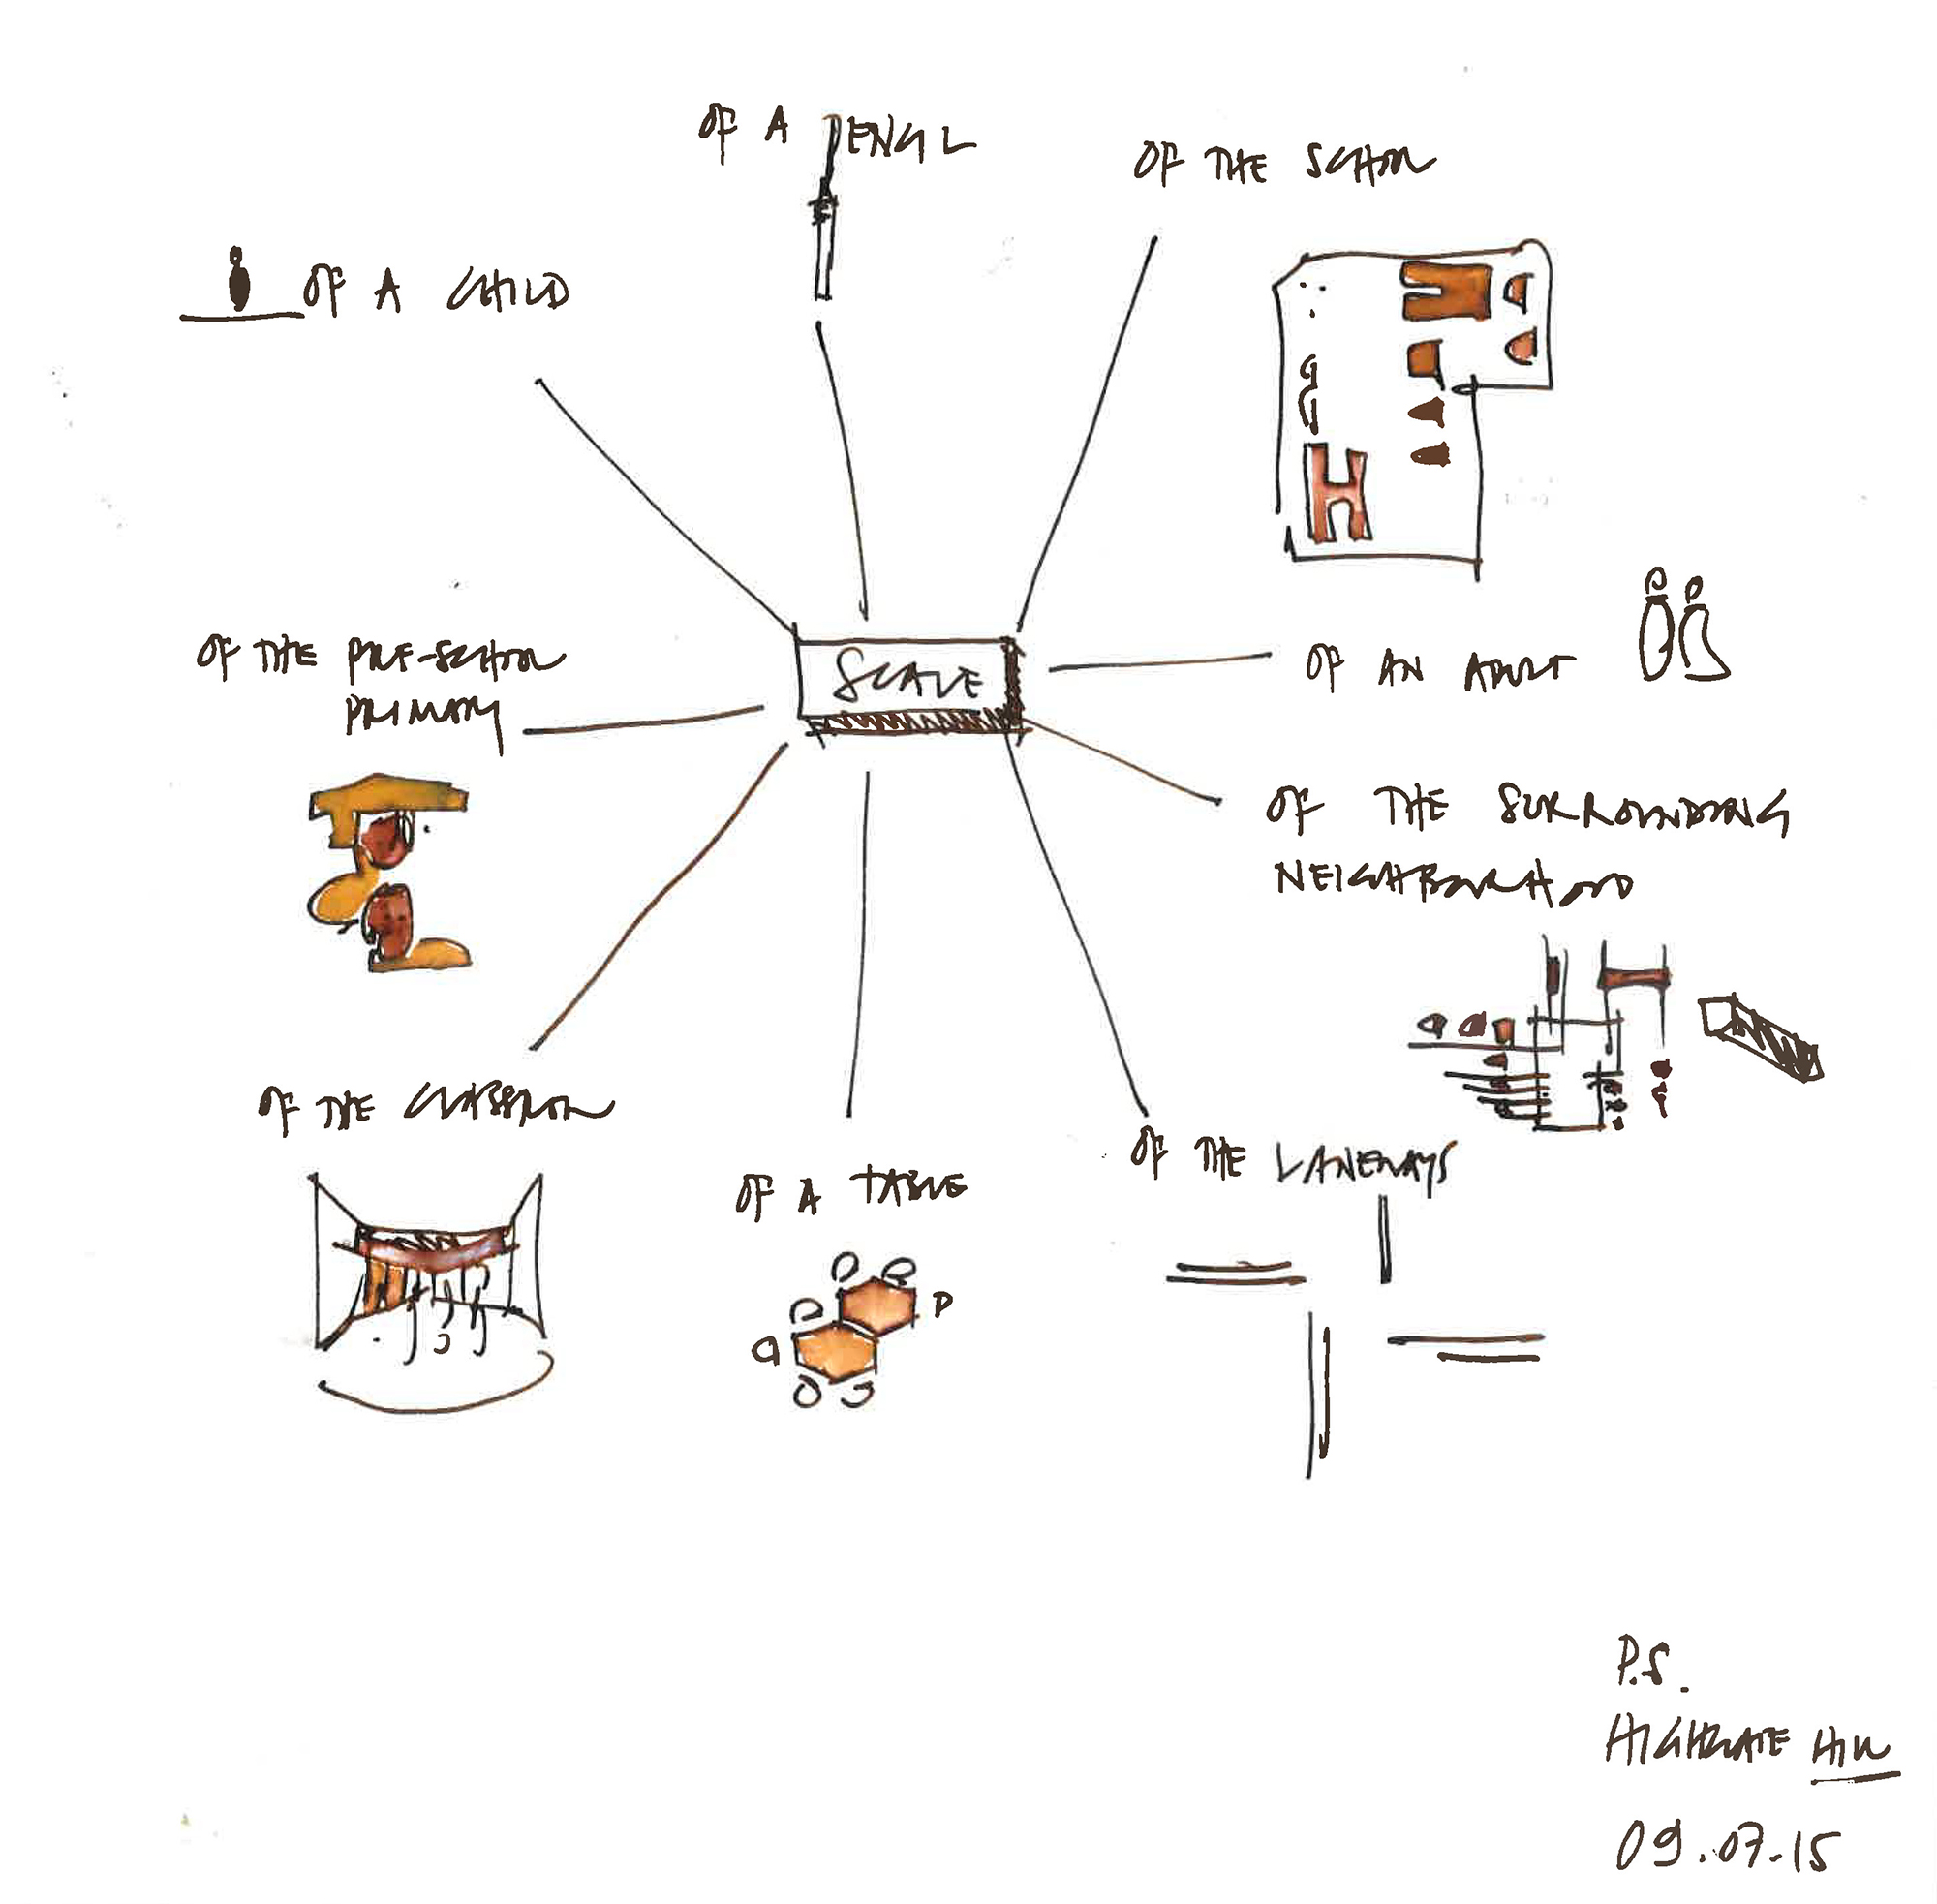 OF A PENCIL
OF THE SCHOOL
OF A CHILD
OF THE PRE-SCHOOL
PRIMARY
SCALE
OF AN ADULT
OF THE SURROUNDING
NEIGHBOURHOOD
OF THE CLASSROOM
OF A TABLE
OF THE LANEWAYS
P.S.
HIGHGATE HILL
09.07.15